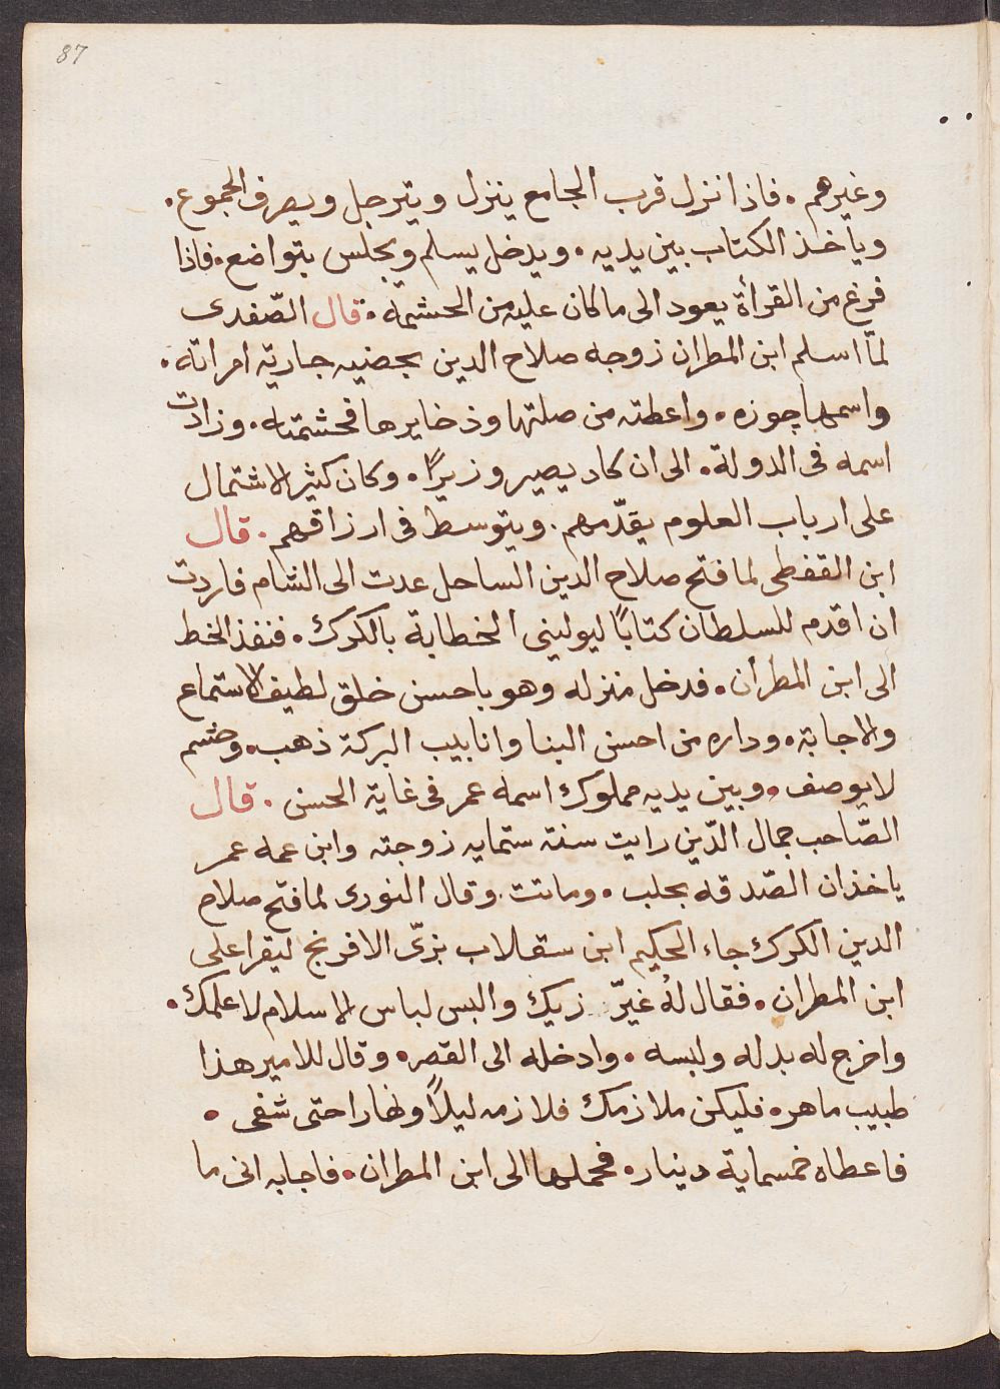 87
وغيرهم . فاذا نزل قرب الجامع ينزل ويترجل ويصرف الجموع .
وياخذ الكتاب بين يديه . ويدخل يسلم ويجلس بتواضع . فاذا
فرغ من القرأة يعود الى ما كان عليه من الحشمه . قال الصّفدى
لمّا اسلم ابن المطران زوجه صلاح الدين بحضيه جارية امراته .
واسمها جوزه . واعطته من صلتها وذخايرها فحشمته . وزادت
اسمه فى الدولة . الى ان كاد يصير وزيرًا . وكان كثير الاشتمال
على ارباب العلوم يقدّمهم . ويتوسط فى ارزاقهم . قال
ابن القفطى لما فتح صلاح الدين الساحل عدت الى الشام فاردت
ان اقدم للسلطان كتابًا ليولينى الخطابة بالكرك . فنفذ الخط
الى ابن المطران . فدخل منزله وهو باحسن خلق لطيف الاستماع
والاجابة . وداره من احسن البنا وانابيب البركة ذهب . وختم
لا يوصف . وبين يديه مملوك اسمه عمر فى غاية الحسن . قال
الصّاحب جمال الدّين رايت سنة ستمايه زوجته وابن عمه عمر
ياخذان الصّدقه بحلب . وماتت . وقال النورى لما فتح صلاح
الدين الكرك جاء الحكيم ابن سقلاب بزىّ الافرنج ليقرا على
ابن المطران . فقال لهُ غيرّ زيك والبس لباس الاسلام لاعلمك .
واخرج له بدله ولبسه . وادخله الى القصر . وقال للامير هذا
طبيب ماهر . فليكن ملازمك فلازمه ليلاً ونهارا حتى شفى .
فاعطاه خمسماية دينار . فحملها الى ابن المطران . فاجابه انى ما